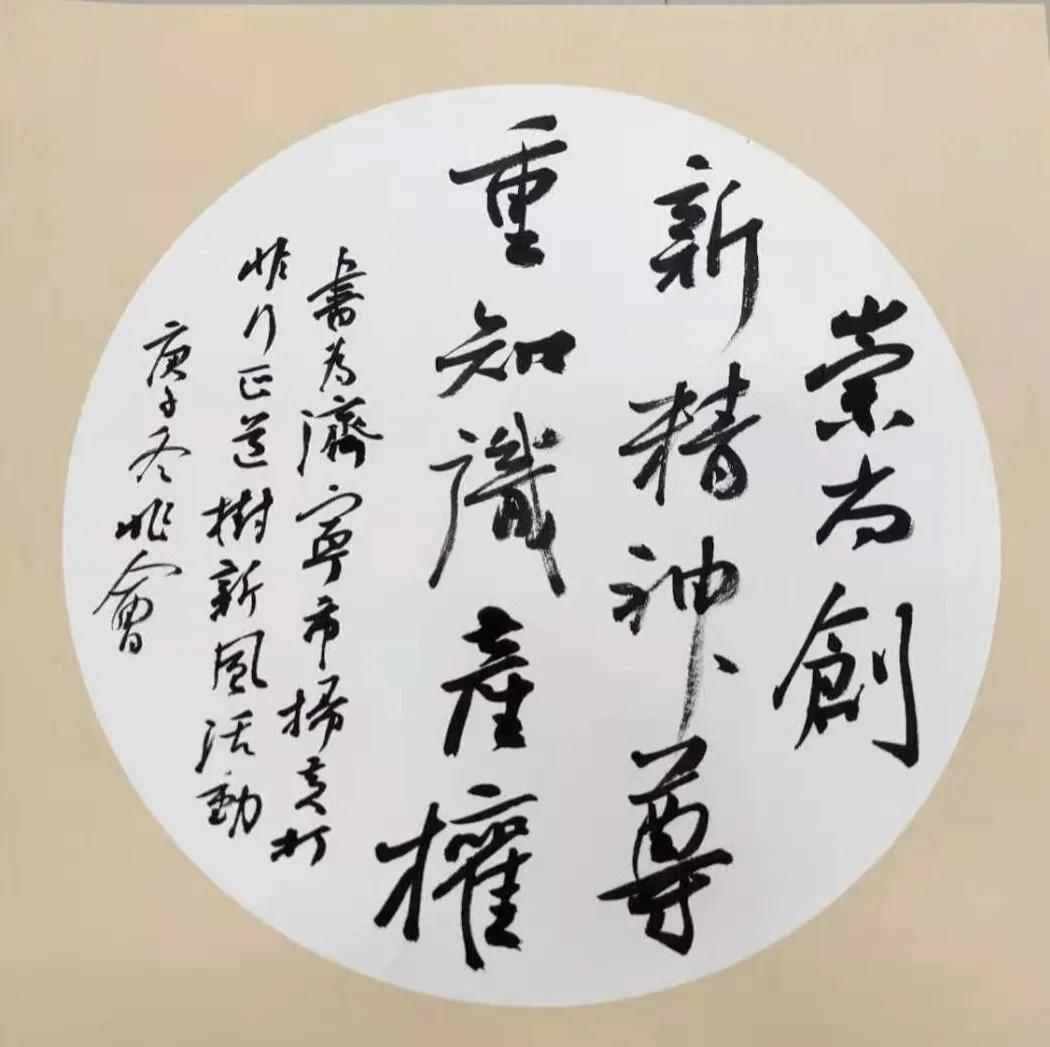 崇尚創
新精神尊
重知識產權
書為濟寧市掃黃打
非行正道樹新風活動
庚子冬兆會